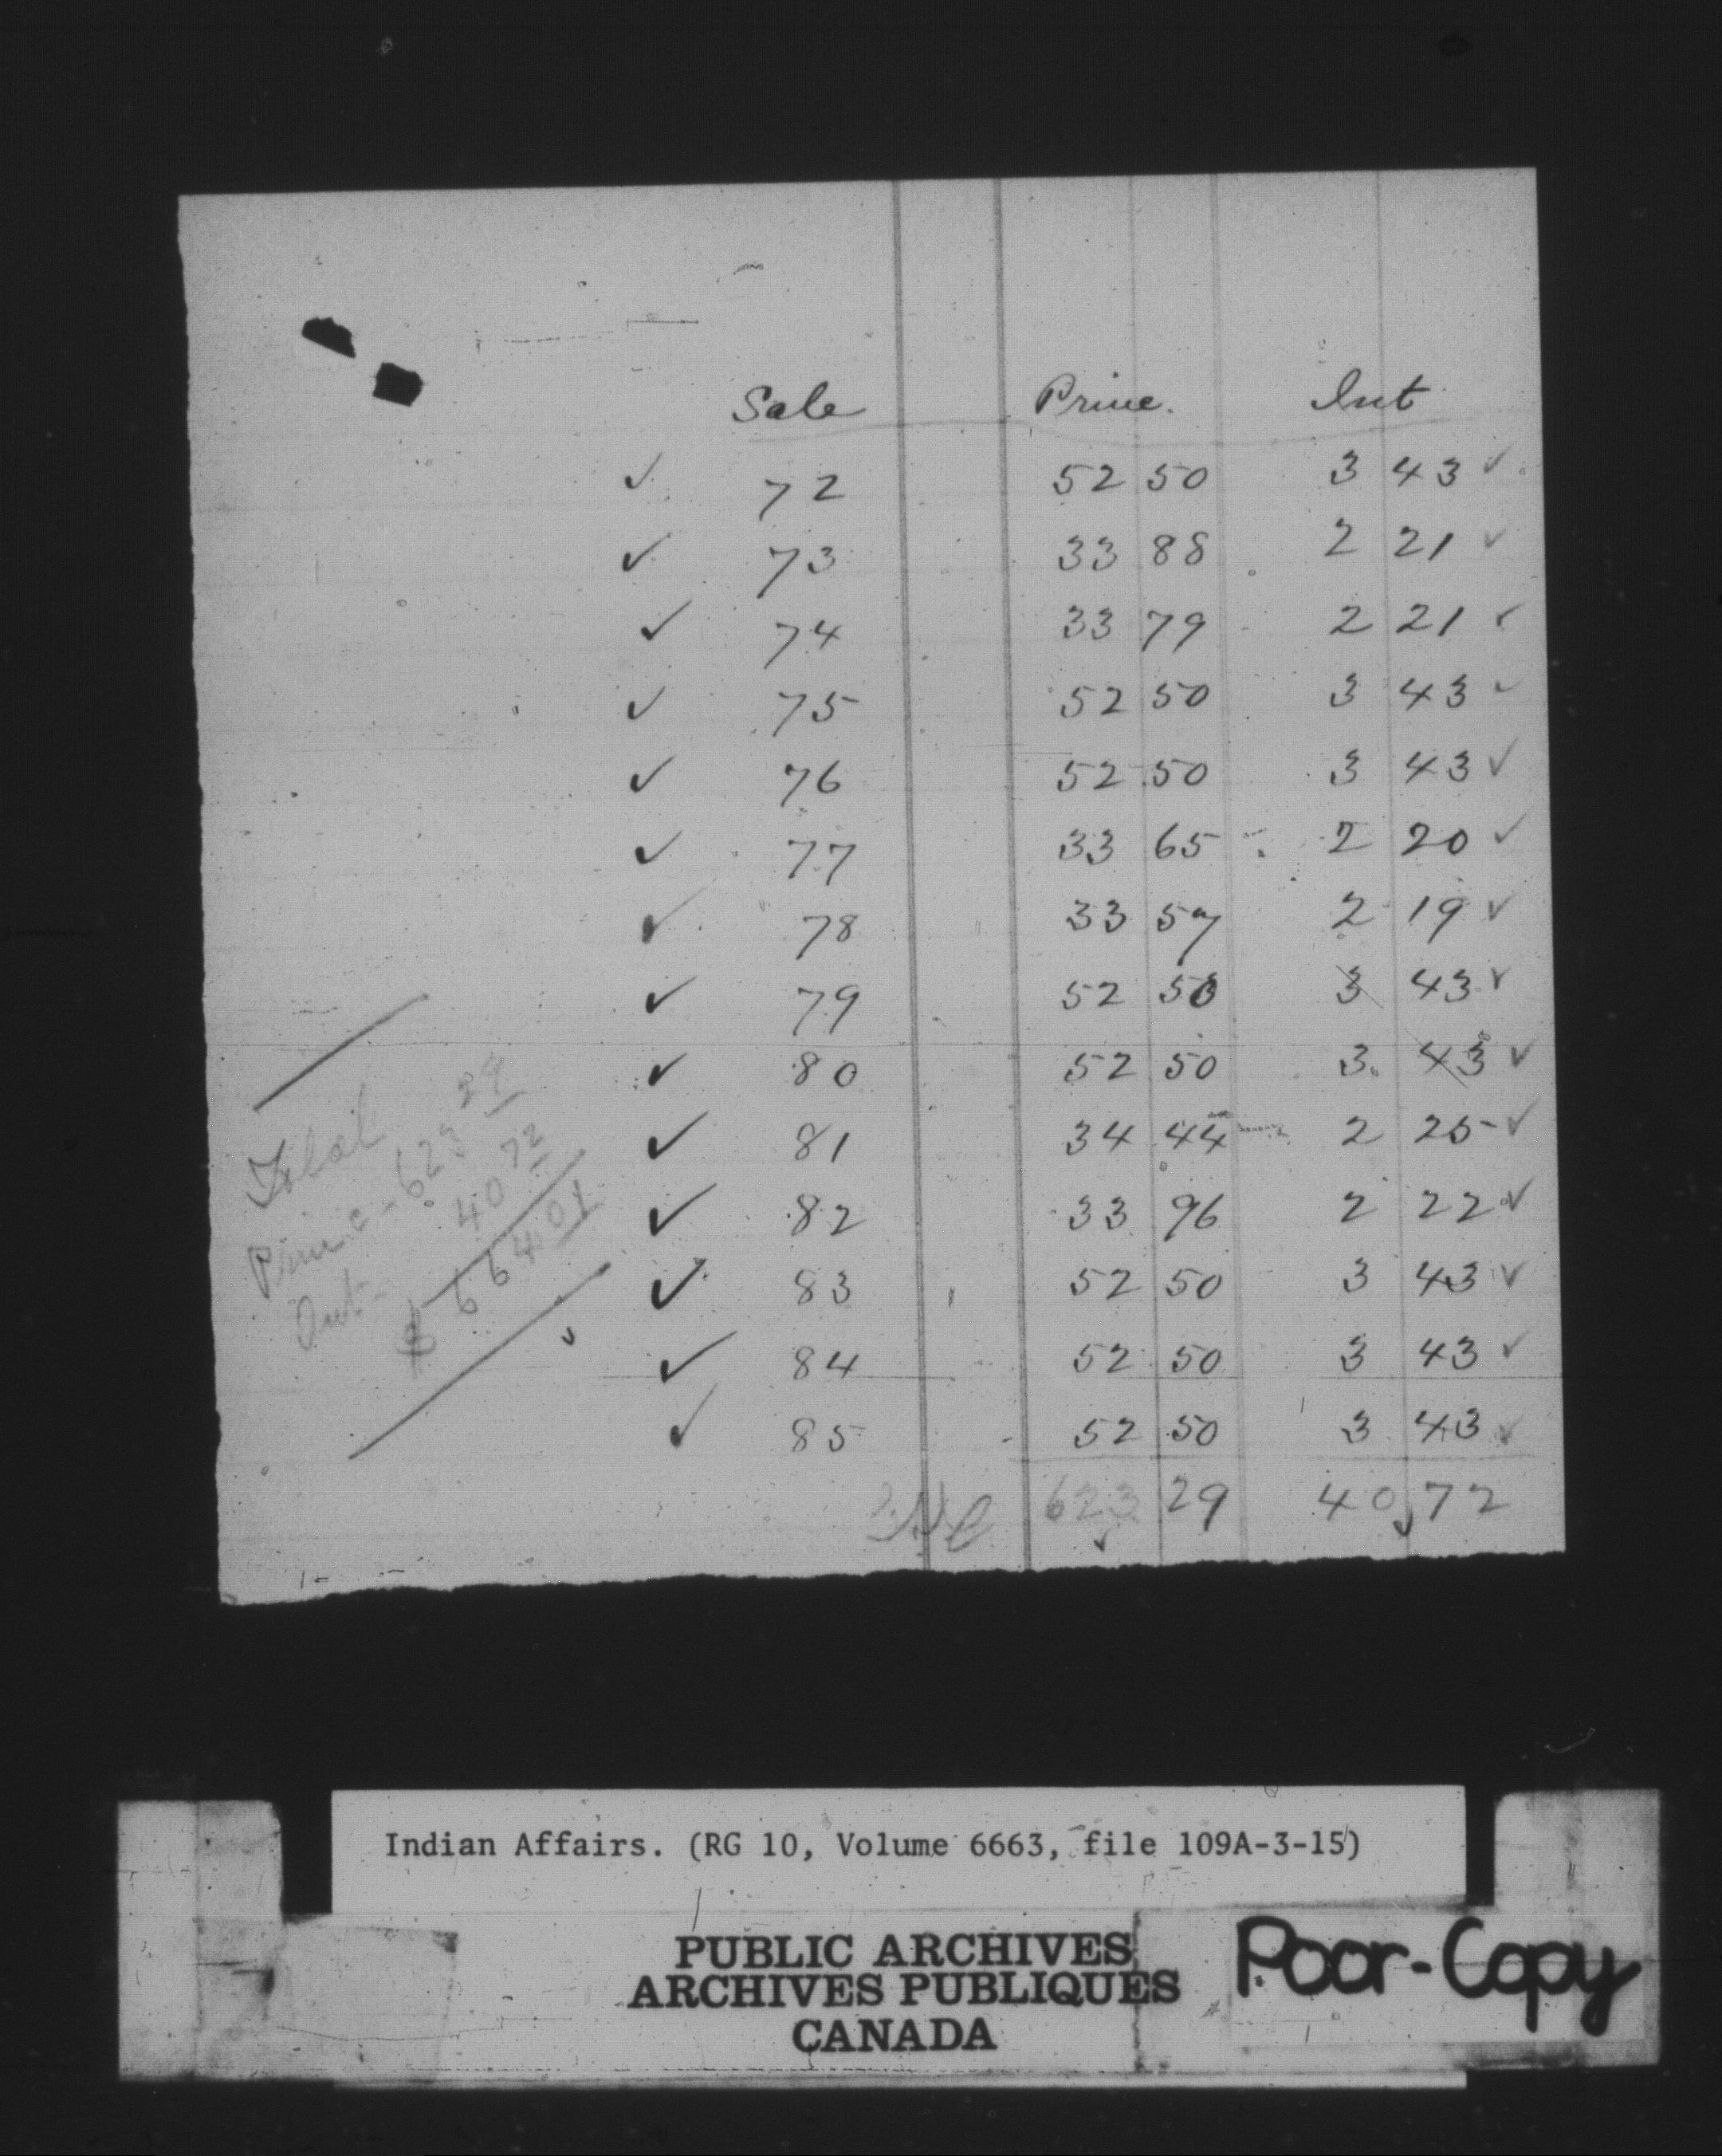 Sale Princ. Int
✓ 72 52 50 3 43 ✓
✓ 73 33 88 2 21 ✓
✓ 74 33 79 2 21 ✓
✓ 75 52 50 3 43 ✓
✓ 76 52 50 3 43 ✓
✓ 77 33 65 2 20 ✓
✓ 78 33 57 2 19 ✓
✓ 79 52 50 3 43 ✓
✓ 80 52 50 3. 43 ✓
✓ 81 34 44 2 25 ✓
✓ 82 33 96 2 22 ✓
✓ 83 52 50 3 43 ✓
✓ 84 52 50 3 43 ✓
✓ 85 52 50 3 43 ✓
623 29 40 72
Total
Princ - 623 29
Int - 40 72
$ 664 01
Indian Affairs. (RG 10, Volume 6663, file 109A-3-15)
PUBLIC ARCHIVES
ARCHIVES PUBLIQUES
CANADA
Poor-Copy